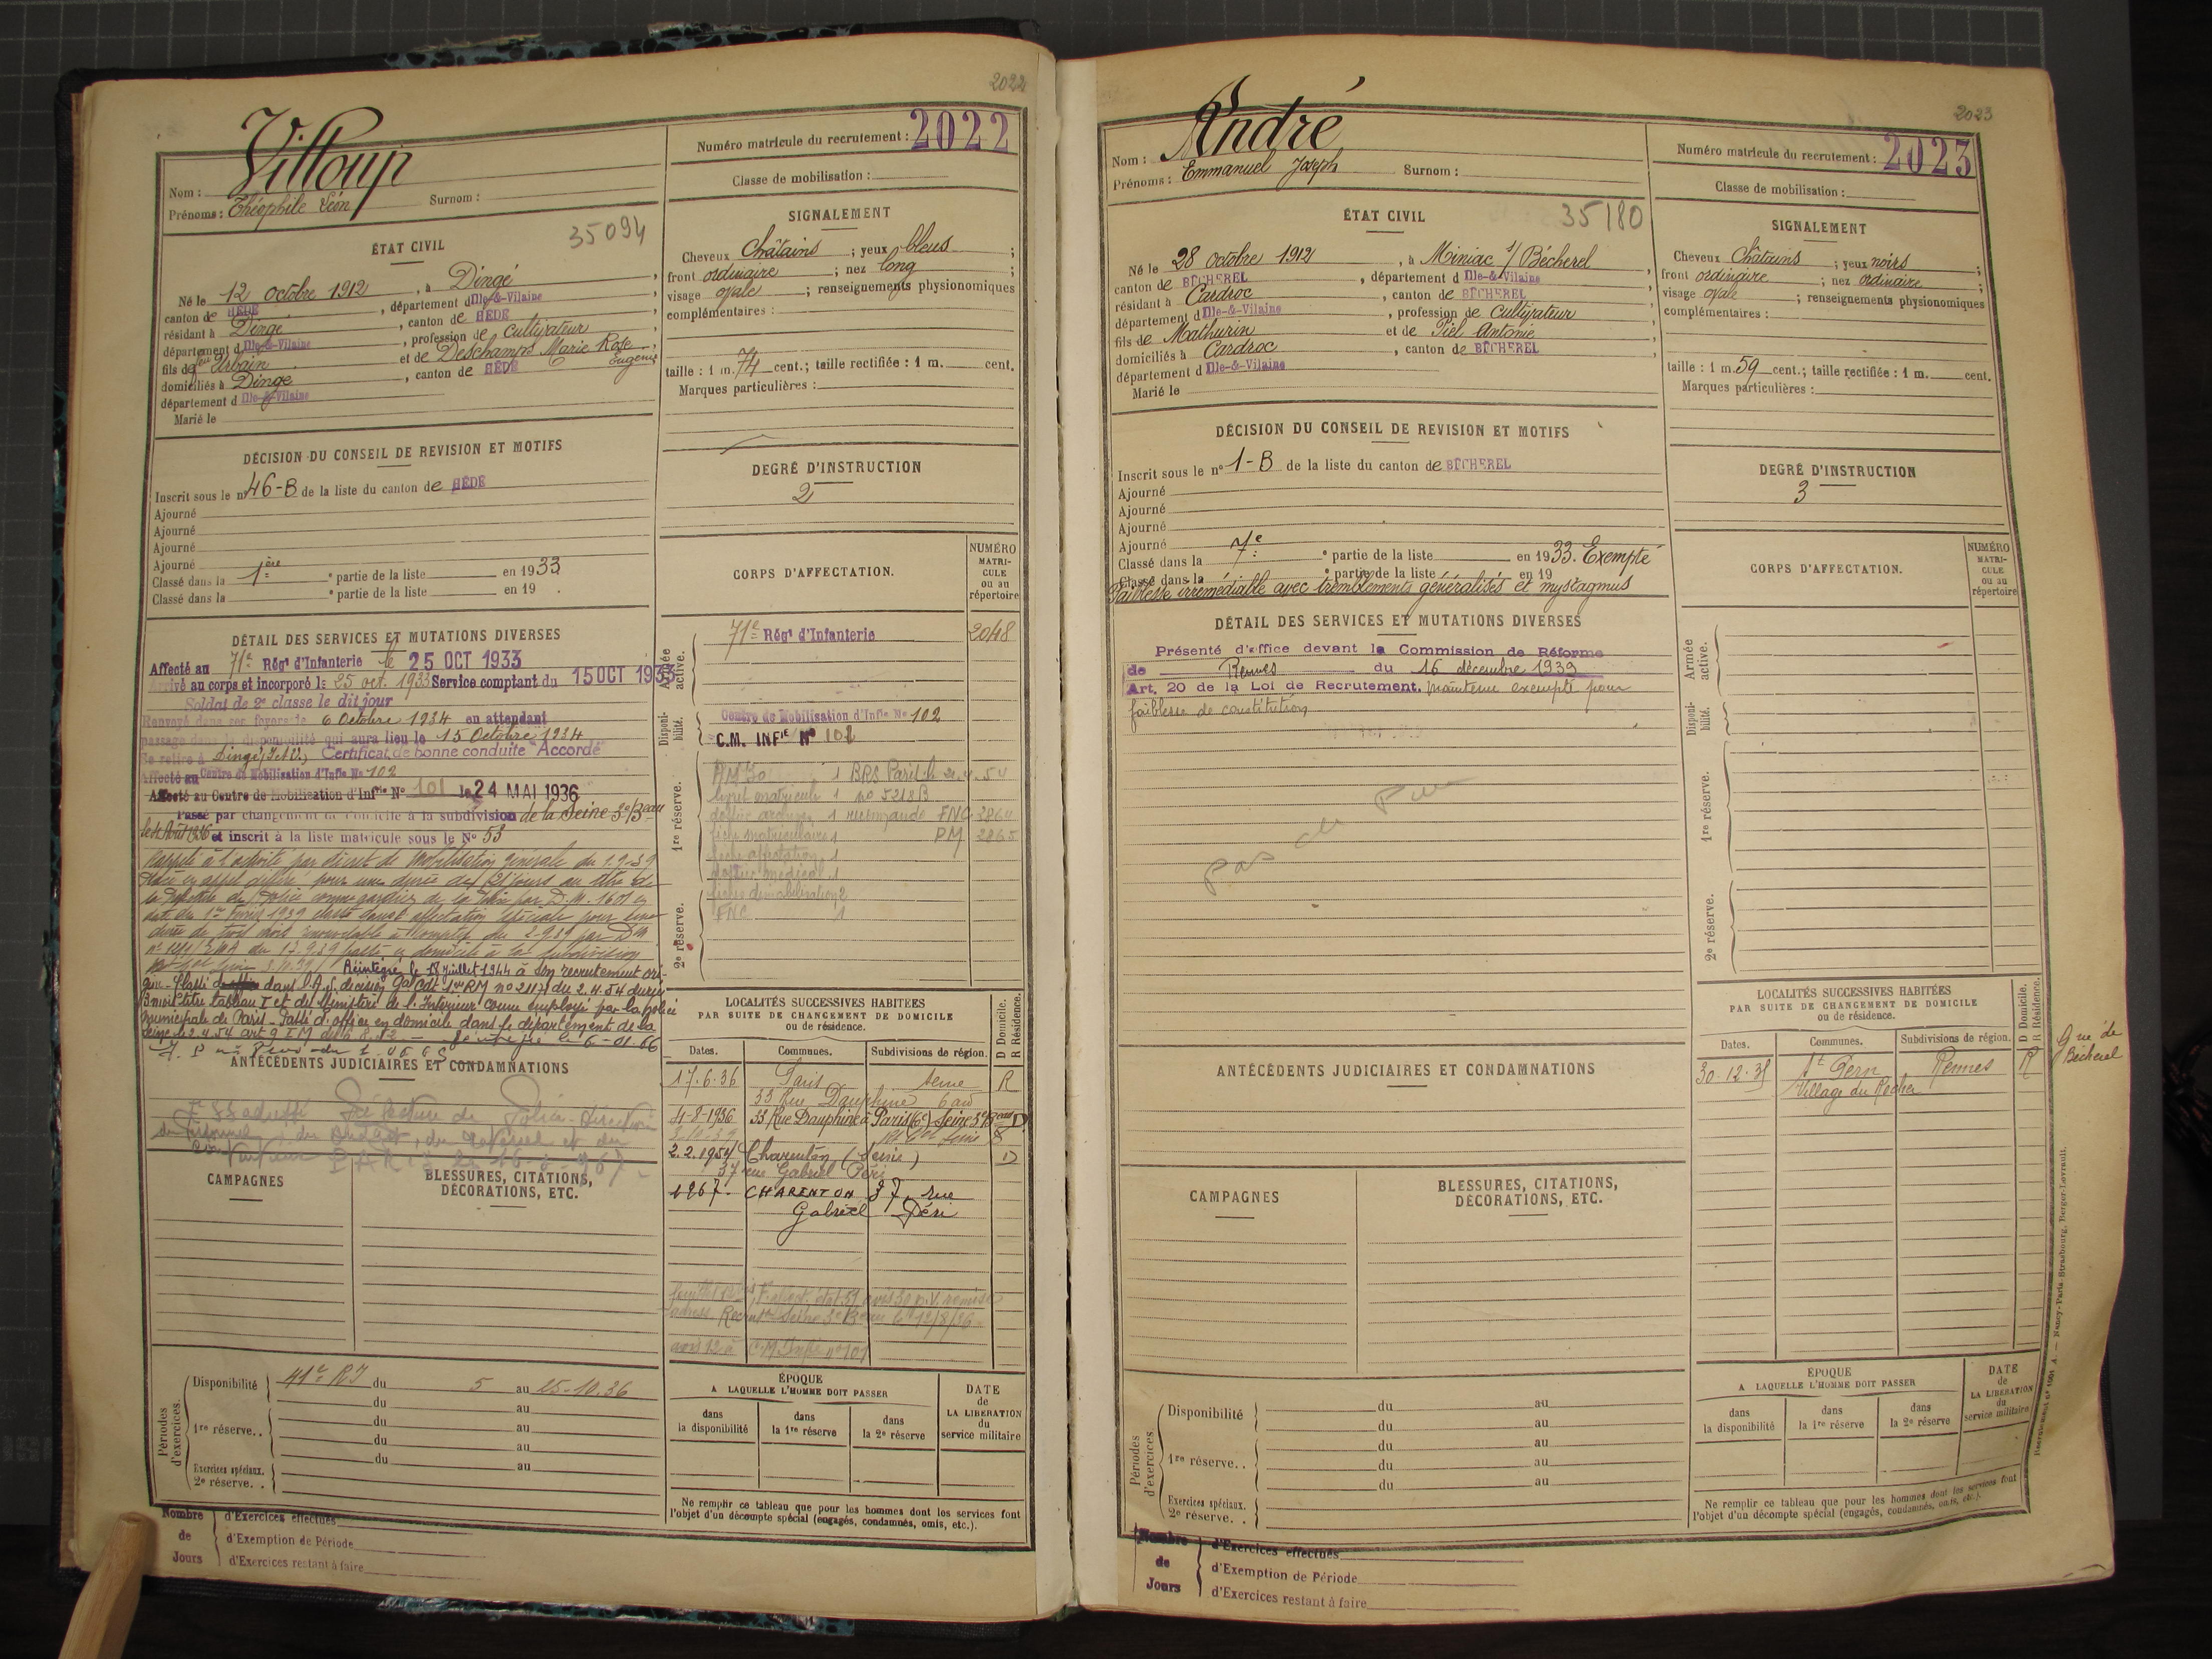 2022
Villoup
Nom :
Prénoms : Théophile Léon Surnom :
Numéro matricule du recrutement : 2022
Classe de mobilisation :
ÉTAT CIVIL
35094
Né le 12 octobre 1912, à Dingé,
canton de HÉDÉ, département d Ille-&-Vilaine,
résidant à Dingé, canton de HÉDÉ,
département d Ille-&-Vilaine, profession de cultivateur,
fils de feu Urbain et de Deschamps Marie Rose Eugénie,
domiciliés à Dingé, canton de HÉDÉ,
département d Ille-&-Vilaine
Marié le
SIGNALEMENT
Cheveux Châtains ; yeux bleus ;
front ordinaire ; nez long ;
visage ovale ; renseignements physionomiques
complémentaires :
taille : 1 m. 74 cent.; taille rectifiée : 1 m. cent.
Marques particulières :
DÉCISION DU CONSEIL DE REVISION ET MOTIFS
Inscrit sous le n° 46-B de la liste du canton de HÉDÉ
Ajourné
Ajourné
Ajourné
Ajourné
Classé dans la 1ère partie de la liste en 1933
Classé dans la partie de la liste en 19 .
DEGRÉ D'INSTRUCTION
2
DÉTAIL DES SERVICES ET MUTATIONS DIVERSES
Affecté au 71e Régt d'Infanterie le 25 OCT 1933
Arrivé au corps et incorporé le 25 oct. 1933 Service comptant du 15 OCT 1933
Soldat de 2e classe le dit jour
Renvoyé dans ses foyers le 6 Octobre 1934 en attendant
passage dans la disponibilité qui aura lieu le 15 Octobre 1934
Se retire à Dingé (I et V.) Certificat de bonne conduite "Accordé"
Affecté au Centre de Mobilisation d'Infie No 102
Affecté au Centre de Mobilisation d'Infrie No 101 le 24 MAI 1936
Passé par changement de domicile à la subdivision de la Seine 3e Beau
le 4 Août 1936 et inscrit à la liste matricule sous le No 53
Rappelé à l'activité par décret de Mobilisation générale du 1.9.39
Placé en appel différé pour une durée de 21 jours au titre de
la Préfecture de Police comme gardien de la Paix par D.M. 1601
durée de trois mois renouvelable à compter du 2-9.39 par DM
du 13.9.39 passé en domicile à la subdivision
Réintégré le 18 juillet 1944 à son recrutement ori-
gine. Classé dans l'A.S. décision Gal Cdt 1re RM no 2117 du 2.4.54 durée
3 mois titre tableau I et du Ministère de l'Intérieur comme employé par la police
municipale de Paris - Passé d'office en domicile dans le département de la
Seine le 2.4.54
CORPS D'AFFECTATION.
NUMÉRO MATRI-CULE ou au répertoire
Armée active.
71e Régt d'Infanterie 2048
Disponi-bilité.
Centre de Mobilisation d'Infie No 102
C.M. INFIE No 102
1re réserve.
1 BRS Paris
livret matricule 1 no 5218B
FNC 2864
fiche matriculaire 1 PM 2865
fiche affectation 1
dossier médical 1
fiches démobilisation 2
FNC 1
2e réserve.
ANTÉCÉDENTS JUDICIAIRES ET CONDAMNATIONS
Préfecture de Police Direction
du Personnel, du Budget, du Matériel et du
Contentieux PARIS
LOCALITÉS SUCCESSIVES HABITÉES
PAR SUITE DE CHANGEMENT DE DOMICILE
ou de résidence.
Dates. Communes. Subdivisions de région. D Domicile. R Résidence.
17.6.36 Paris Seine R
33 Rue Dauphine 6 arr
4-8-1936 33 Rue Dauphine à Paris (6e) Seine 3e Beau D
2.2.1954 Charenton (Seine) D
37 rue Gabriel Péri
1967. CHARENTON 37 rue
Gabriel Péri
CAMPAGNES
BLESSURES, CITATIONS, DÉCORATIONS, ETC.
Périodes d'exercices.
Disponibilité 41e RI du 5 au 25-10.36
du au
1re réserve.. du au
du au
du au
Exercices spéciaux.
2e réserve. .
ÉPOQUE
A LAQUELLE L'HOMME DOIT PASSER
dans la disponibilité
dans la 1re réserve
dans la 2e réserve
DATE de LA LIBERATION du service militaire
Ne remplir ce tableau que pour les hommes dont les services font
l'objet d'un décompte spécial (engagés, condamnés, omis, etc.).
Nombre de Jours
d'Exercices effectués
d'Exemption de Période
d'Exercices restant à faire
2023
André
Nom :
Prénoms : Emmanuel Joseph Surnom :
Numéro matricule du recrutement : 2023
Classe de mobilisation :
ÉTAT CIVIL
35180
Né le 28 octobre 1912, à Miniac s/ Bécherel,
canton de BÉCHEREL, département d Ille-&-Vilaine,
résidant à Cardroc, canton de BÉCHEREL,
département d Ille-&-Vilaine, profession de cultivateur,
fils de Mathurin et de Piel Antonie,
domiciliés à Cardroc, canton de BÉCHEREL,
département d Ille-&-Vilaine
Marié le
SIGNALEMENT
Cheveux Châtains ; yeux noirs ;
front ordinaire ; nez ordinaire ;
visage ovale ; renseignements physionomiques
complémentaires :
taille : 1 m. 59 cent.; taille rectifiée : 1 m. cent.
Marques particulières :
DÉCISION DU CONSEIL DE REVISION ET MOTIFS
Inscrit sous le n° 1-B de la liste du canton de BÉCHEREL
Ajourné
Ajourné
Ajourné
Ajourné
Classé dans la 7e partie de la liste en 1933. Exempté
Classé dans la partie de la liste en 19
Faiblesse irrémédiable avec tremblements généralisés et nystagmus
DEGRÉ D'INSTRUCTION
3
DÉTAIL DES SERVICES ET MUTATIONS DIVERSES
Présenté d'office devant la Commission de Réforme
de Rennes du 16 décembre 1939
Art. 20 de la Loi de Recrutement. maintenu exempté pour
faiblesse de constitution
pas de
CORPS D'AFFECTATION.
NUMÉRO MATRI-CULE ou au répertoire
Armée active.
Disponi-bilité.
1re réserve.
2e réserve.
ANTÉCÉDENTS JUDICIAIRES ET CONDAMNATIONS
LOCALITÉS SUCCESSIVES HABITÉES
PAR SUITE DE CHANGEMENT DE DOMICILE
ou de résidence.
Dates. Communes. Subdivisions de région. D Domicile. R Résidence.
30.12.38 St Pern Rennes R
Village du Rocher
Bécherel
CAMPAGNES
BLESSURES, CITATIONS, DÉCORATIONS, ETC.
Périodes d'exercices.
Disponibilité du au
du au
1re réserve. . du au
du au
du au
Exercices spéciaux.
2e réserve. .
ÉPOQUE
A LAQUELLE L'HOMME DOIT PASSER
dans la disponibilité
dans la 1re réserve
dans la 2e réserve
DATE de LA LIBÉRATION du service militaire
Ne remplir ce tableau que pour les hommes dont les services font
l'objet d'un décompte spécial (engagés, condamnés, omis, etc.).
Nombre de Jours
d'Exercices effectués
d'Exemption de Période
d'Exercices restant à faire
Nancy-Paris-Strasbourg, Berger-Levrault.